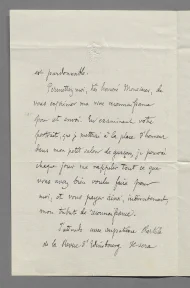 est pardonnable.
Permettez-moi, cher Monsieur, de
vous exprimer ma vive reconnaissance
pour cet envoi. En examinant votre
portrait, que je mettrai à la place d'honneur
dans mon petit salon de garçon, je pourrai
chaque jour me rappeler tout ce que
vous avez bien voulu faire pour
moi, et vous payer ainsi, intérieurement,
mon tribut de reconnaissance.
J'attends avec impatience
de la Revue d'Strasbourg